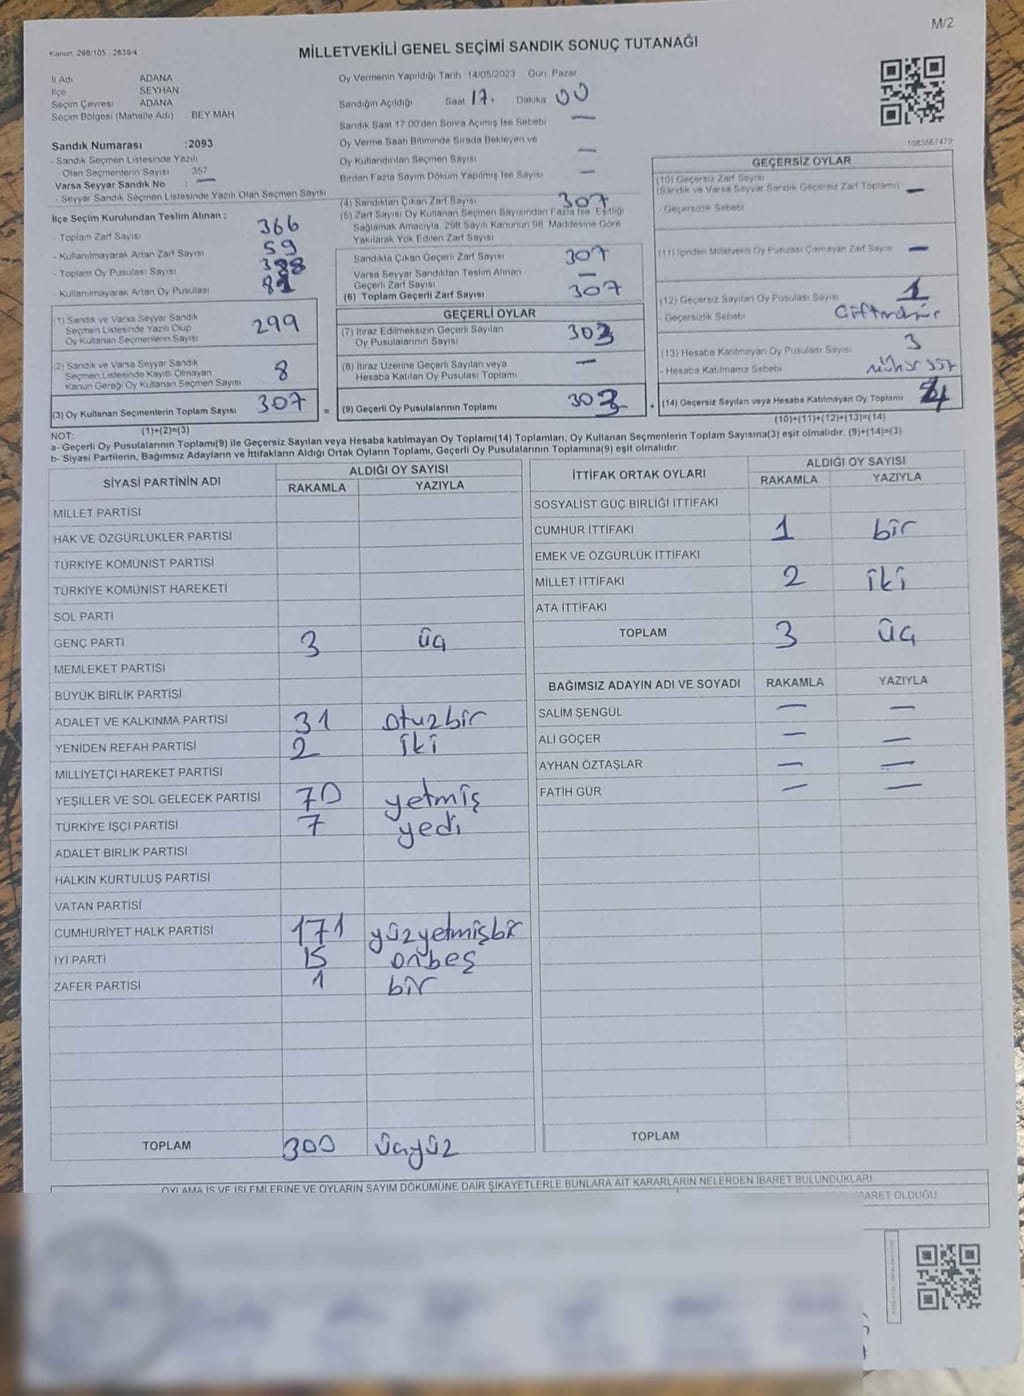 M/2
Kanun 298/105 2839/4
MİLLETVEKİLİ GENEL SEÇİMİ SANDIK SONUÇ TUTANAĞI
İl Adı ADANA
İlçe SEYHAN
Seçim Çevresi ADANA
Seçim Bölgesi (Mahalle Adı) BEY MAH
Oy Vermenin Yapıldığı Tarih 14/05/2023 Gün Pazar
Sandığın Açıldığı Saat 17 Dakika 00
Sandık Saat 17:00'den Sonra Açılmış İse Sebebi —
Oy Verme Saati Bitiminde Sırada Bekleyen ve
Oy Kullandırılan Seçmen Sayısı —
Birden Fazla Sayım Döküm Yapılmış İse Sayısı —
1083567479
Sandık Numarası :2093
- Sandık Seçmen Listesinde Yazılı
Olan Seçmenlerin Sayısı 357
Varsa Seyyar Sandık No : —
- Seyyar Sandık Seçmen Listesinde Yazılı Olan Seçmen Sayısı
İlçe Seçim Kurulundan Teslim Alınan ;
- Toplam Zarf Sayısı 366
- Kullanılmayarak Artan Zarf Sayısı 59
- Toplam Oy Pusulası Sayısı
- Kullanılmayarak Artan Oy Pusulası
(1) Sandık ve Varsa Seyyar Sandık
Seçmen Listesinde Yazılı Olup
Oy Kullanan Seçmenlerin Sayısı 299
(2) Sandık ve Varsa Seyyar Sandık
Seçmen Listesinde Kayıtlı Olmayan
Kanun Gereği Oy Kullanan Seçmen Sayısı 8
(3) Oy Kullanan Seçmenlerin Toplam Sayısı 307 =
(1)+(2)=(3)
(4) Sandıktan Çıkan Zarf Sayısı 307
(5) Zarf Sayısı Oy Kullanan Seçmen Sayısından Fazla İse, Eşitliği
Sağlamak Amacıyla, 298 Sayılı Kanunun 98. Maddesine Göre
Yakılarak Yok Edilen Zarf Sayısı
Sandıkta Çıkan Geçerli Zarf Sayısı 307
Varsa Seyyar Sandıktan Teslim Alınan
Geçerli Zarf Sayısı —
(6) Toplam Geçerli Zarf Sayısı 307
GEÇERLİ OYLAR
(7) İtiraz Edilmeksizin Geçerli Sayılan
Oy Pusulalarının Sayısı 303
(8) İtiraz Üzerine Geçerli Sayılan veya
Hesaba Katılan Oy Pusulası Toplamı —
(9) Geçerli Oy Pusulalarının Toplamı 303 +
GEÇERSİZ OYLAR
(10) Geçersiz Zarf Sayısı
(Sandık ve Varsa Seyyar Sandık Geçersiz Zarf Toplamı) —
- Geçersizlik Sebebi
(11) İçinden Milletvekili Oy Pusulası Çıkmayan Zarf Sayısı —
(12) Geçersiz Sayılan Oy Pusulası Sayısı 1
- Geçersizlik Sebebi
(13) Hesaba Katılmayan Oy Pusulası Sayısı 3
- Hesaba Katılmama Sebebi
(14) Geçersiz Sayılan veya Hesaba Katılmayan Oy Toplamı
(10)+(11)+(12)+(13)=(14)
NOT:
a- Geçerli Oy Pusulaları Toplamı(9) ile Geçersiz Sayılan veya Hesaba katılmayan Oy Toplamı(14) Toplamları, Oy Kullanan Seçmenlerin Toplam Sayısına(3) eşit olmalıdır. (9)+(14)=(3)
b- Siyasi Partilerin, Bağımsız Adayların ve İttifakların Aldığı Ortak Oyların Toplamı, Geçerli Oy Pusulalarının Toplamına(9) eşit olmalıdır.
SİYASİ PARTİNİN ADI ALDIĞI OY SAYISI
RAKAMLA YAZIYLA
MİLLET PARTİSİ
HAK VE ÖZGÜRLÜKLER PARTİSİ
TÜRKİYE KOMÜNİST PARTİSİ
TÜRKİYE KOMÜNİST HAREKETİ
SOL PARTİ
GENÇ PARTİ 3 üç
MEMLEKET PARTİSİ
BÜYÜK BİRLİK PARTİSİ
ADALET VE KALKINMA PARTİSİ 31 otuzbir
YENİDEN REFAH PARTİSİ 2 iki
MİLLİYETÇİ HAREKET PARTİSİ
YEŞİLLER VE SOL GELECEK PARTİSİ 70 yetmiş
TÜRKİYE İŞÇİ PARTİSİ 7 yedi
ADALET BİRLİK PARTİSİ
HALKIN KURTULUŞ PARTİSİ
VATAN PARTİSİ
CUMHURİYET HALK PARTİSİ 171 yüzyetmişbir
İYİ PARTİ 15 onbeş
ZAFER PARTİSİ 1 bir
TOPLAM 300 üçyüz
İTTİFAK ORTAK OYLARI ALDIĞI OY SAYISI
RAKAMLA YAZIYLA
SOSYALİST GÜÇ BİRLİĞİ İTTİFAKI
CUMHUR İTTİFAKI 1 bir
EMEK VE ÖZGÜRLÜK İTTİFAKI
MİLLET İTTİFAKI 2 iki
ATA İTTİFAKI
TOPLAM 3 üç
BAĞIMSIZ ADAYIN ADI VE SOYADI RAKAMLA YAZIYLA
SALİM ŞENGÜL — —
ALİ GÖÇER — —
AYHAN ÖZTAŞLAR — —
FATİH GÜR — —
TOPLAM
OYLAMA İŞ VE İŞLEMLERİNE VE OYLARIN SAYIM DÖKÜMÜNE DAİR ŞİKAYETLERLE BUNLARA AİT KARARLARIN NELERDEN İBARET BULUNDUKLARI
BARET OLDUĞU